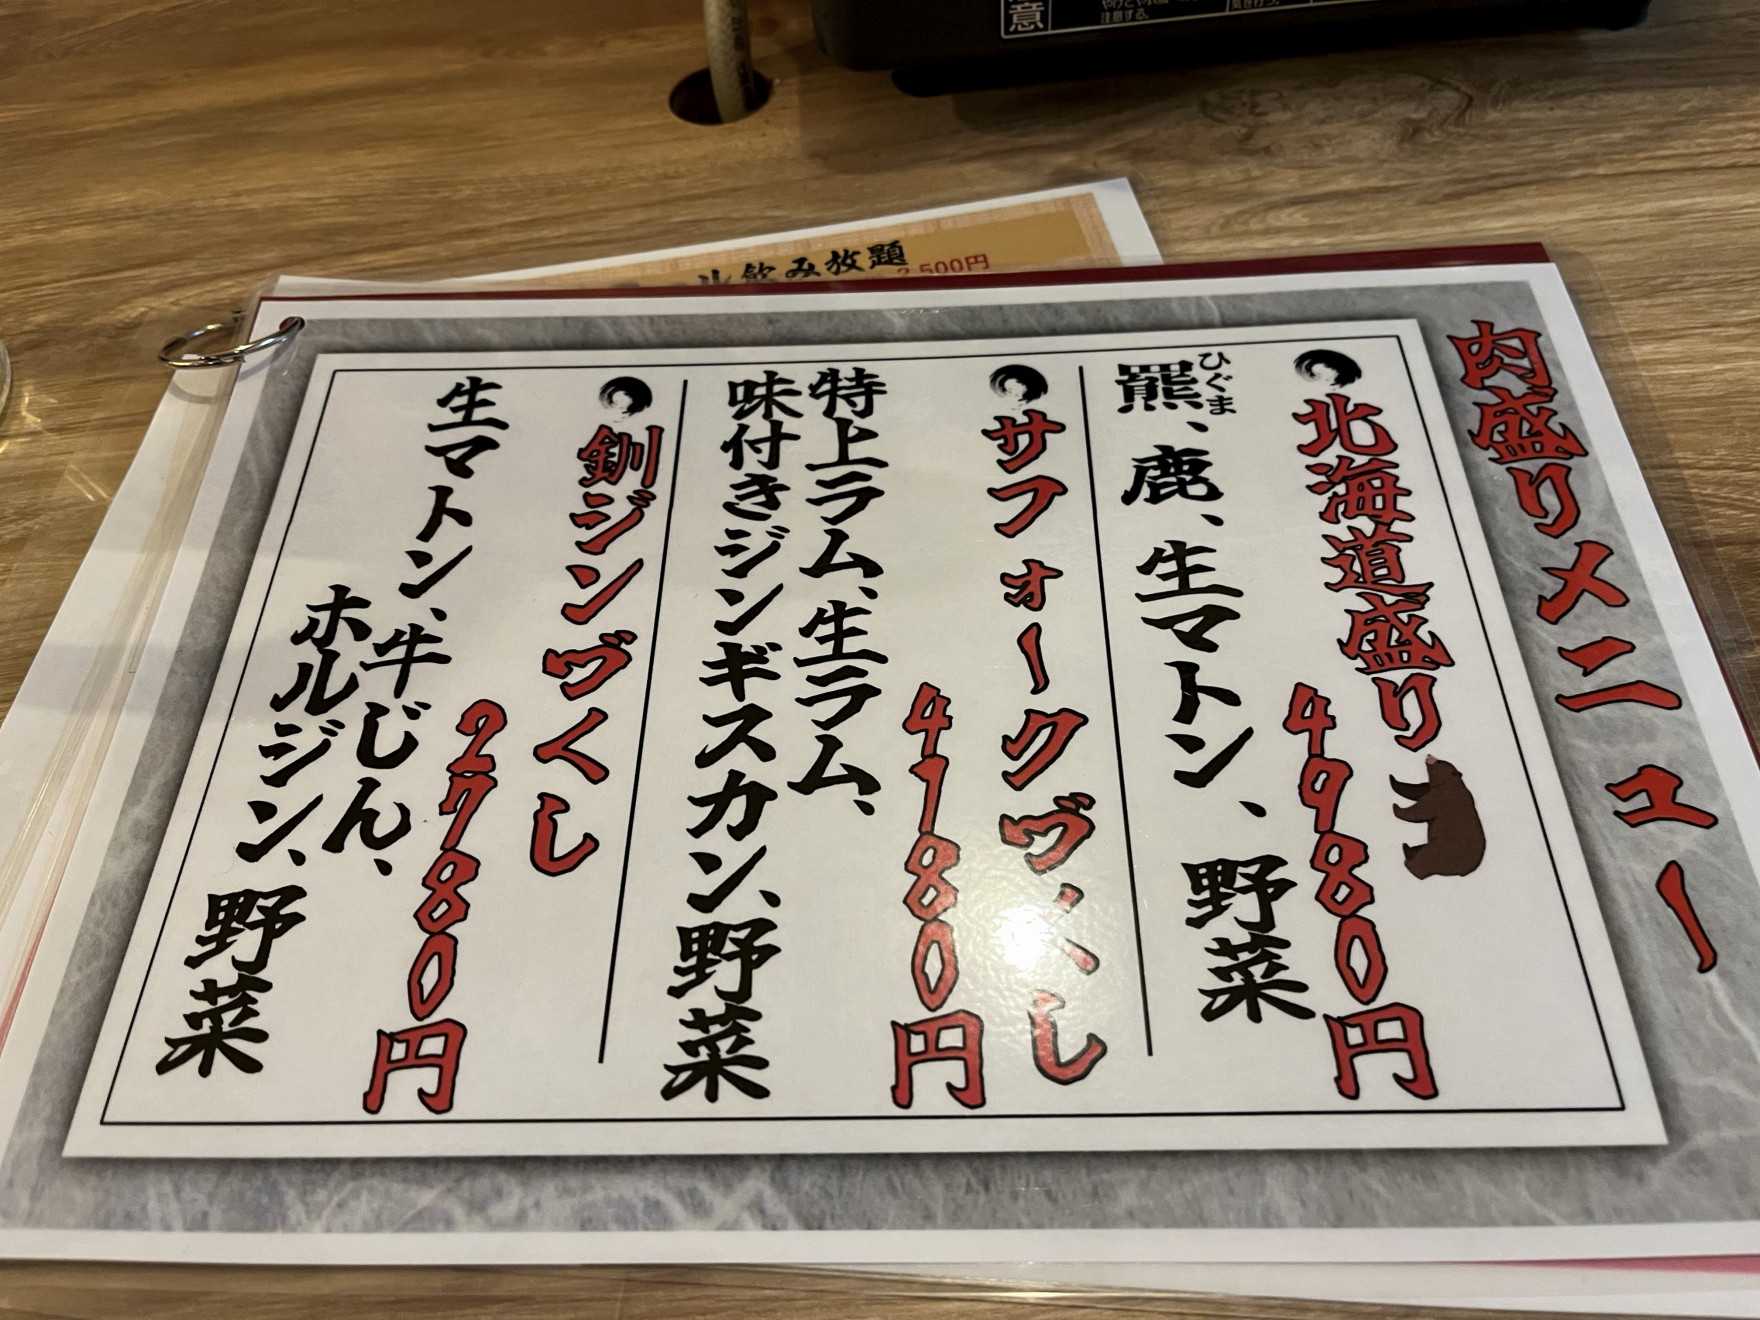 意
注意する。
飲み放題
2,500円
肉盛りメニュー
北海道盛り
4980円
羆、鹿、生マトン、野菜
ひぐま
サフォークヅくし
4780円
特上ラム、生ラム、
味付きジンギスカン、野菜
釧ジンヅくし
2780円
生マトン、牛じん、
ホルジン、野菜